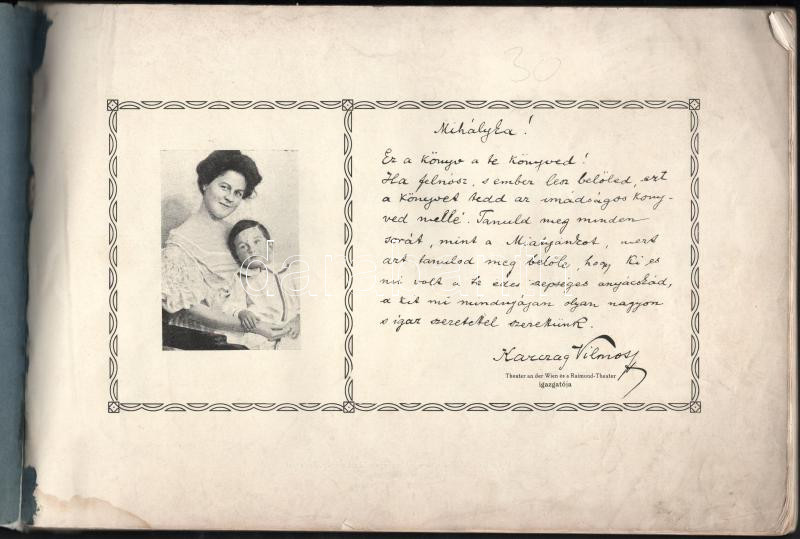 30
Mihályka!
Ez a könyv a te könyved!
Ha felnősz, s ember lesz belőled, ezt
a könyvet tedd az imádságos köny-
ved mellé. Tanuld meg minden
sorát, mint a Miatyánkot, mert
azt tanulod meg belőle, hogy ki és
mi volt a te édes szépséges anyácskád,
a kit mi mindnyájan olyan nagyon
s igaz szeretettel szeretünk.
Karczag Vilmos
Theater an der Wien és a Raimund-Theater
igazgatója